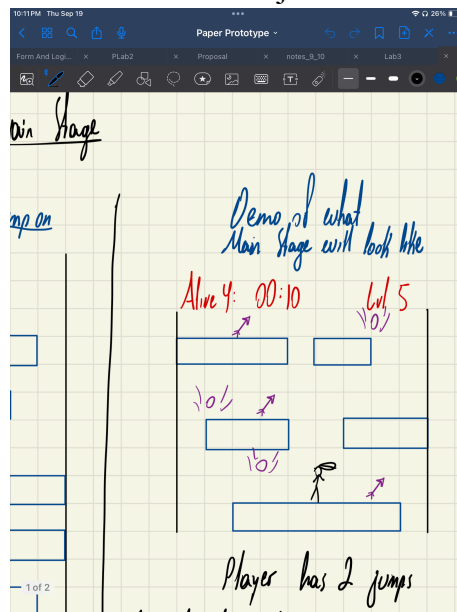 10:11 PM Thu Sep 19
26%
Paper Prototype
Form And Logi...
PLab2
Proposal
notes_9_10
Lab3
ain Stage
mp on
Demo of what
Main Stage will look like
Alive 4: 00:10
Lvl 5
Player has 2 jumps
1 of 2